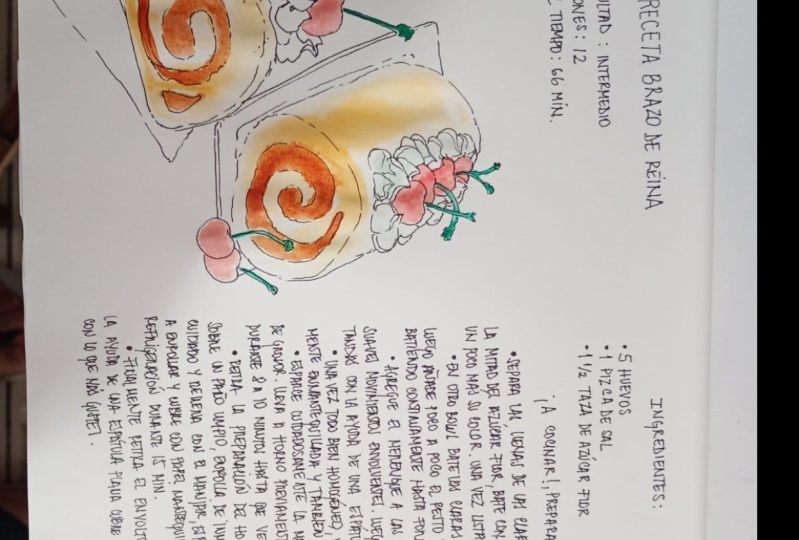 RECETA BRAZO DE REINA
: INTERMEDIO
: 12
TIEMPO: 66 MIN.
INGREDIENTES:
• 5 HUEVOS
• 1 PIZCA DE SAL
• 1 1/2 TAZA DE AZÚCAR FLOR
¡A COCINAR!, PREPARA
• SEPARA LAS YEMAS DE LAS CLAR
LA MITAD DEL AZÚCAR FLOR, BATE CON
UN POCO MÁS SU COLOR. UNA VEZ LISTA
• EN OTRO BOWL BATE LAS CLARAS
LUEGO AÑADE POCO A POCO EL RESTO
BATIENDO CONTINUAMENTE HASTA FOR
• AGREGUE EL MERENGUE A LAS
SUAVES MOVIMIENTOS ENVOLVENTES. LUEG
TANDAS CON LA AYUDA DE UNA ESPÁTU
• UNA VEZ TODO BIEN HOMOGÉNEO,
MENTE ENMANTEQUILLADA Y TAMBIÉN
• ESPARCE CUIDADOSAMENTE LA M
DE GROSOR. LLEVA A HORNO PREVIAMENT
DURANTE 8 A 10 MINUTOS HASTA QUE VE
• RETIRA LA PREPARACIÓN DEL HO
SOBRE UN PAÑO LIMPIO, ENROLLA DE INM
CUIDADO Y RELLENA CON EL MANJAR,
A ENROLLAR Y CUBRE CON PAPEL MANTEQUI
REFRIGERACIÓN DURANTE 15 MIN.
• FINALMENTE RETIRA EL ENVOLT
LA AYUDA DE UNA ESPÁTULA PLANA CUBRE
CON LO QUE MÁS GUSTES.